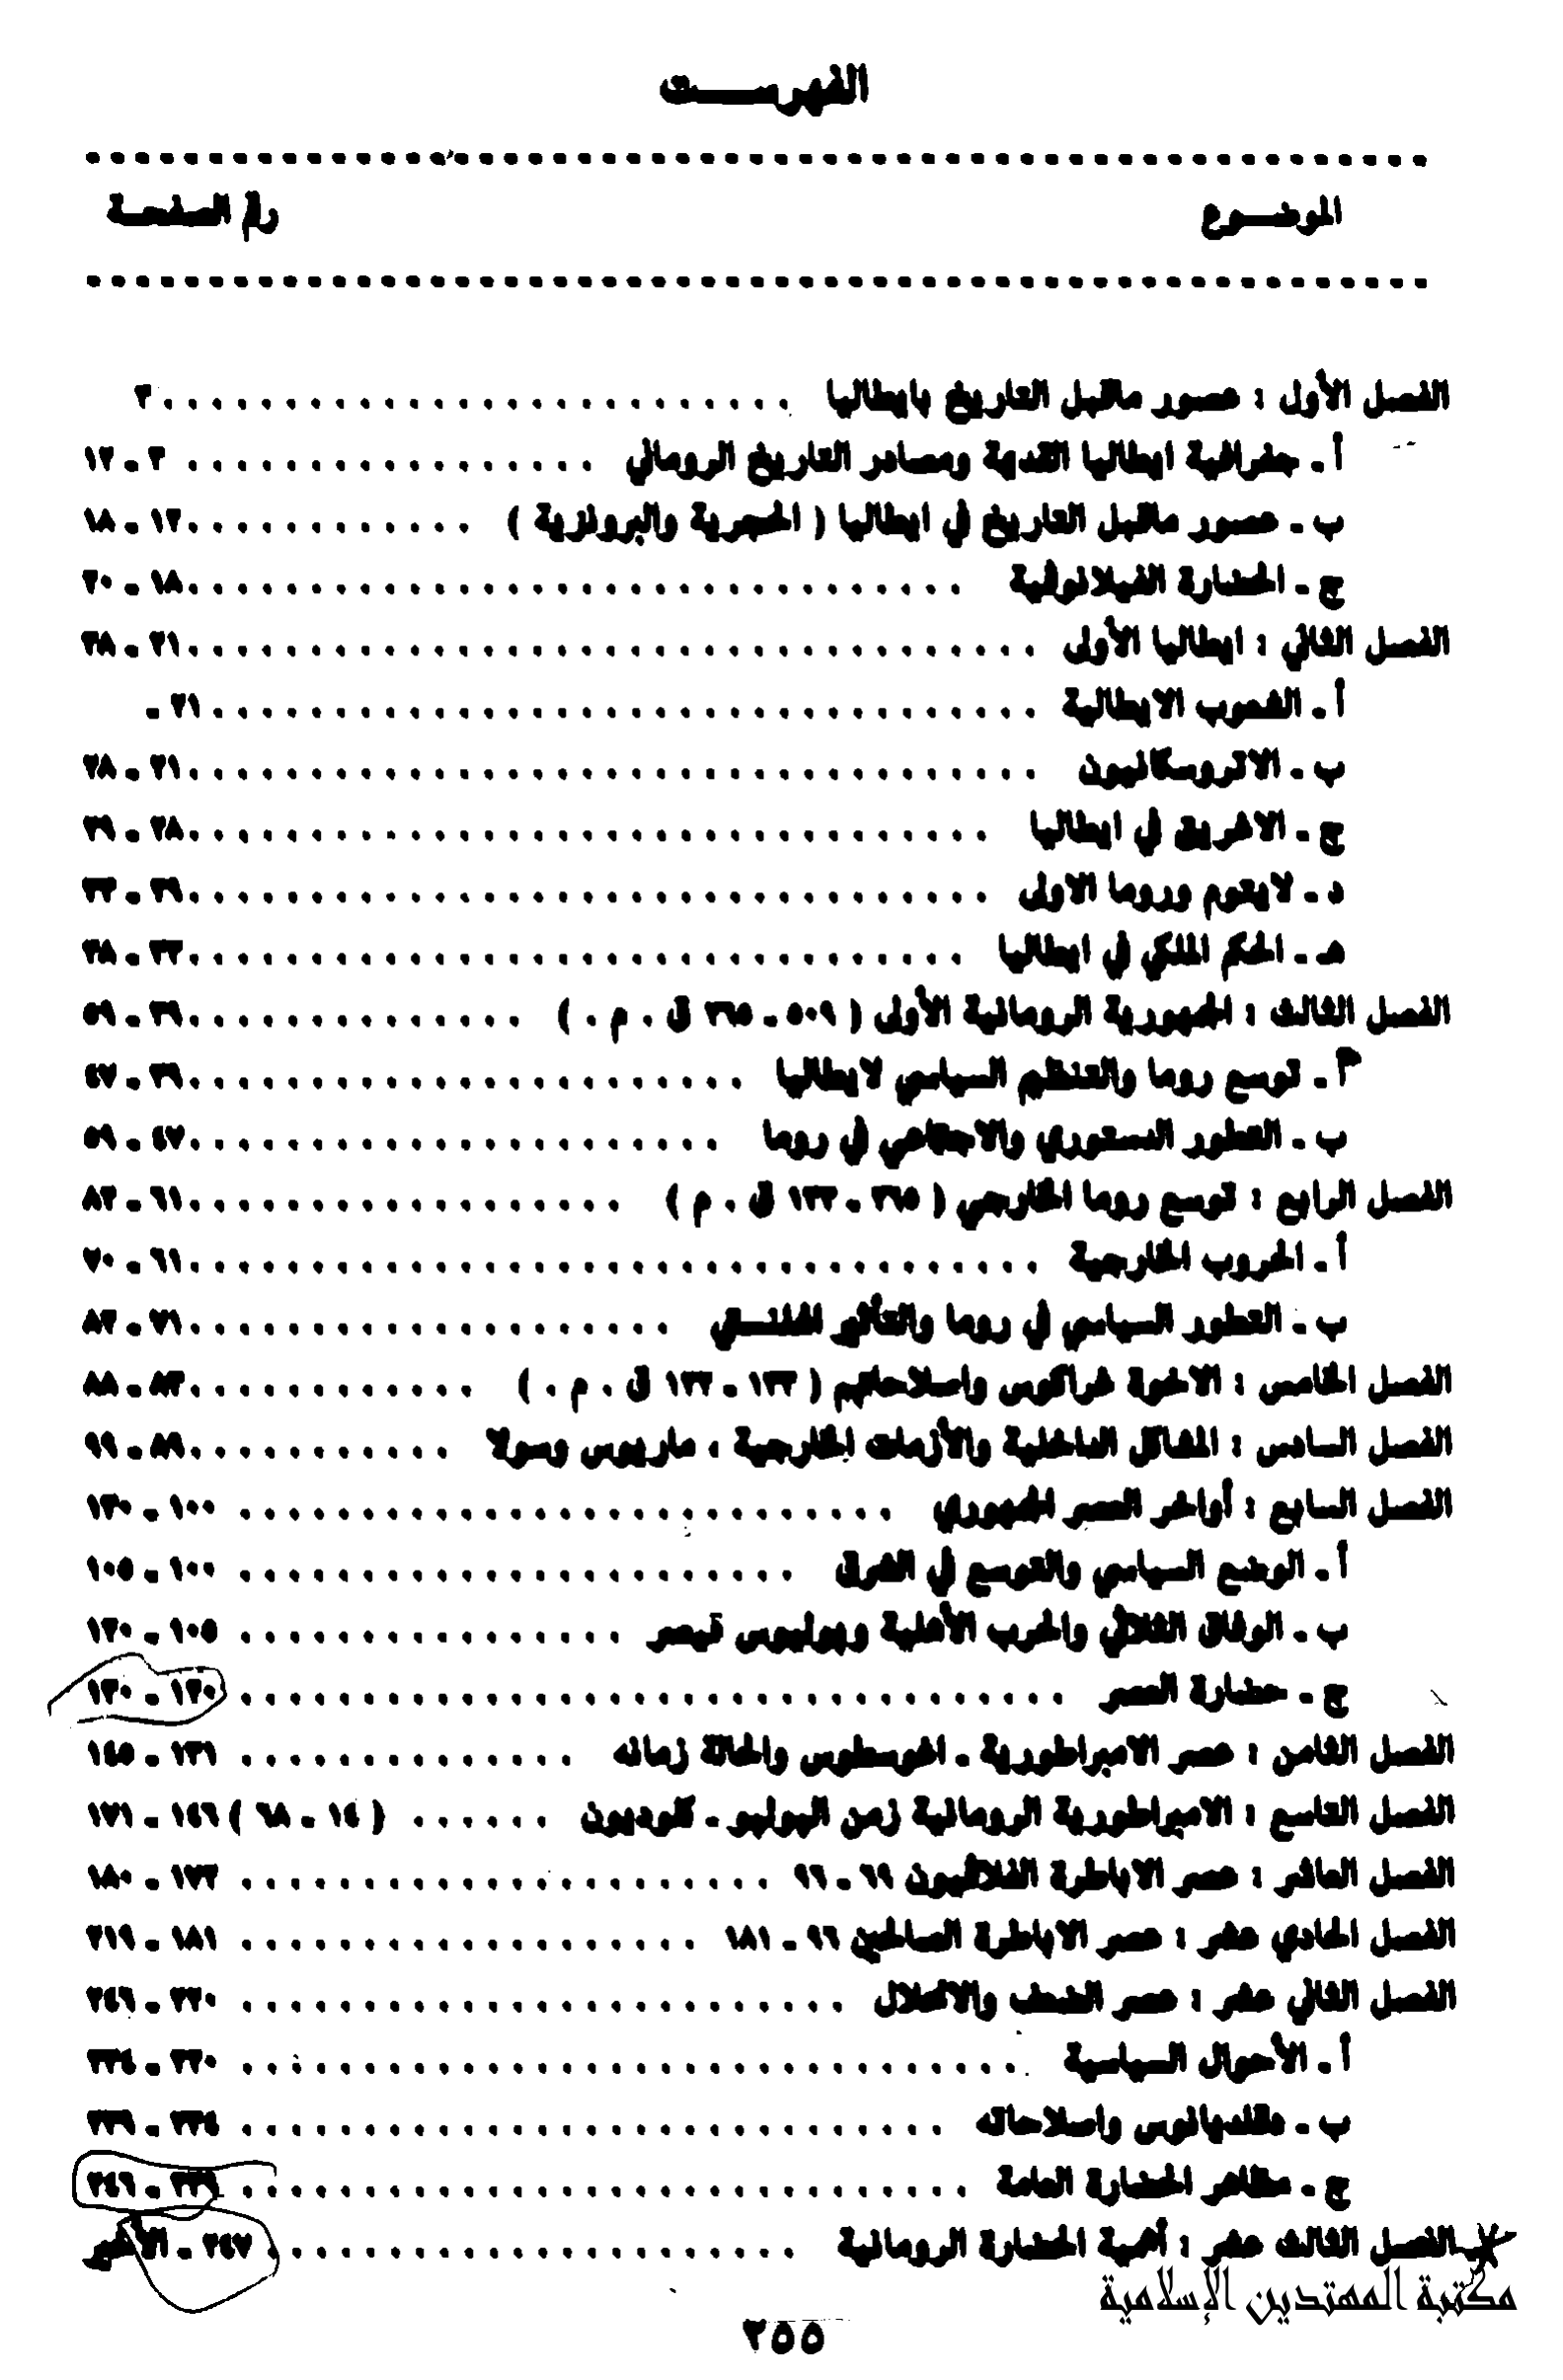 الفهرست
الموضوع رقم الصفحة
الفصل الأول : عصور ماقبل التاريخ بايطاليا ٣
أ ـ جغرافية ايطاليا القديمة ومصادر التاريخ الروماني ٣ ـ ١٢
ب ـ عصور ماقبل التاريخ في ايطاليا ( الحجرية والبرونزية ) ١٢ ـ ١٨
ج ـ الحضارة الفيلانوفية ١٨ ـ ٢٠
الفصل الثاني : ايطاليا الأولى ٢١ ـ ٣٨
أ ـ الشعوب الايطالية ٢١ ـ
ب ـ الاتروسكانيون ٢١ ـ ٢٨
ج ـ الاغريق في ايطاليا ٢٨ ـ ٢٩
د ـ لايتوم وروما الاولى ٢٩ ـ ٣٣
هـ ـ الحكم الملكي في ايطاليا ٣٣ ـ ٣٨
الفصل الثالث : الجمهورية الرومانية الأولى ( ٥٠٩ ـ ٢٦٥ ق . م . ) ٣٩ ـ ٥٩
أ ـ توسع روما والتنظيم السياسي لايطاليا ٣٩ ـ ٤٧
ب ـ التطور الدستوري والاجتماعي في روما ٤٧ ـ ٥٩
الفصل الرابع : توسع روما الخارجي ( ٢٦٥ ـ ١٣٣ ق . م ) ٦١ ـ ٨٢
أ ـ الحروب الخارجية ٦١ ـ ٧٠
ب ـ التطور السياسي في روما والتأثير الهلنستي ٧١ ـ ٨٢
الفصل الخامس : الاخوة غراكوس واصلاحاتهم ( ١٣٣ ـ ١٢٢ ق . م . ) ٨٣ ـ ٨٨
الفصل السادس : المشاكل الداخلية والأزمات الخارجية ، ماريوس وسولا ٨٩ ـ ٩٩
الفصل السابع : أواخر العصر الجمهوري ١٠٠ ـ ١٣٠
أ ـ الوضع السياسي والتوسع في الشرق ١٠٠ ـ ١٠٥
ب ـ الوفاق الثلاثي والحرب الأهلية ويوليوس قيصر ١٠٥ ـ ١٢٠
ج ـ حضارة العصر ١٢٠ ـ ١٣٠
الفصل الثامن : عصر الامبراطورية ـ اغوسطوس والحالة زمانه ١٣١ ـ ١٤٥
الفصل التاسع : الامبراطورية الرومانية زمن اليوليو ـ كلوديون ( ١٤ ـ ٦٨ ) ١٤٦ ـ ١٧١
الفصل العاشر : عصر الاباطرة الفلافيون ٦٩ ـ ٩٦ ١٧٢ ـ ١٨٠
الفصل الحادي عشر : عصر الاباطرة الصالحين ٩٦ ـ ١٨١ ١٨١ ـ ٢١٩
الفصل الثاني عشر : عصر الضعف والانحلال ٢٢٠ ـ ٢٤٦
أ ـ الأحوال السياسية ٢٢٠ ـ ٢٣٤
ب ـ دقلديانوس واصلاحاته ٢٣٤ ـ ٢٣٩
ج ـ مظاهر الحضارة العامة ٢٣٩ ـ ٢٤٦
الفصل الثالث عشر : أهمية الحضارة الرومانية ٢٤٧ ـ الأخير
مكتبة المهتدين الإسلامية
٢٥٥